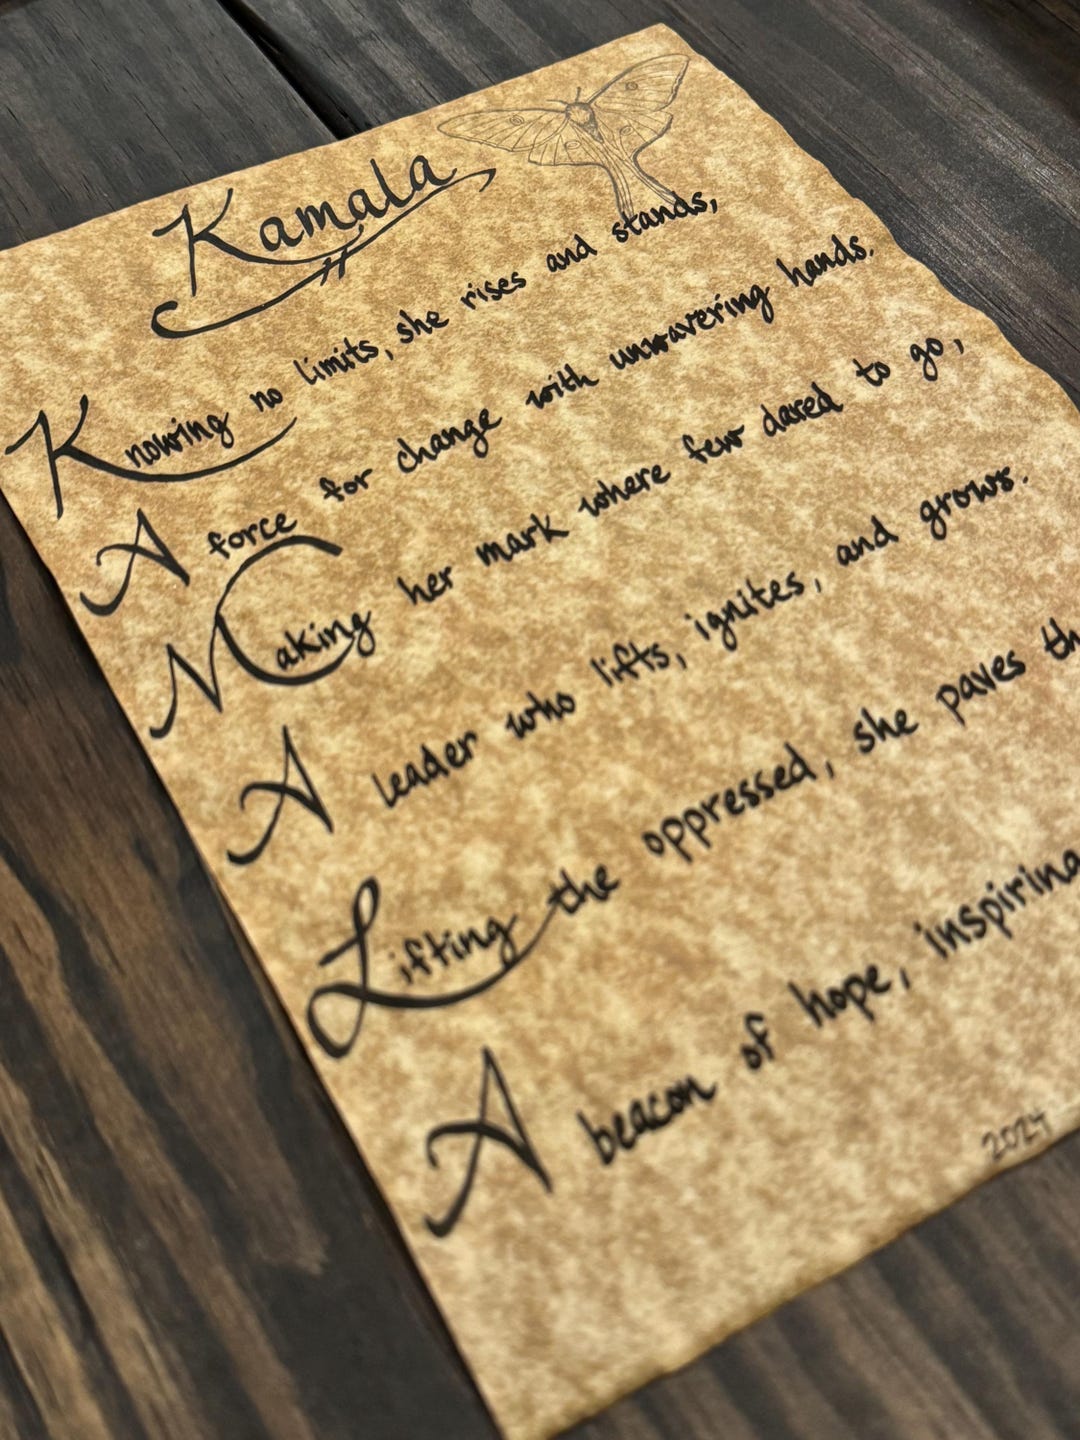 Kamala
Knowing no limits, she rises and stands,
A force for change with unwavering hands.
Making her mark where few dared to go,
A leader who lifts, ignites, and grows.
Lifting the oppressed, she paves th
A beacon of hope, inspiring
2024